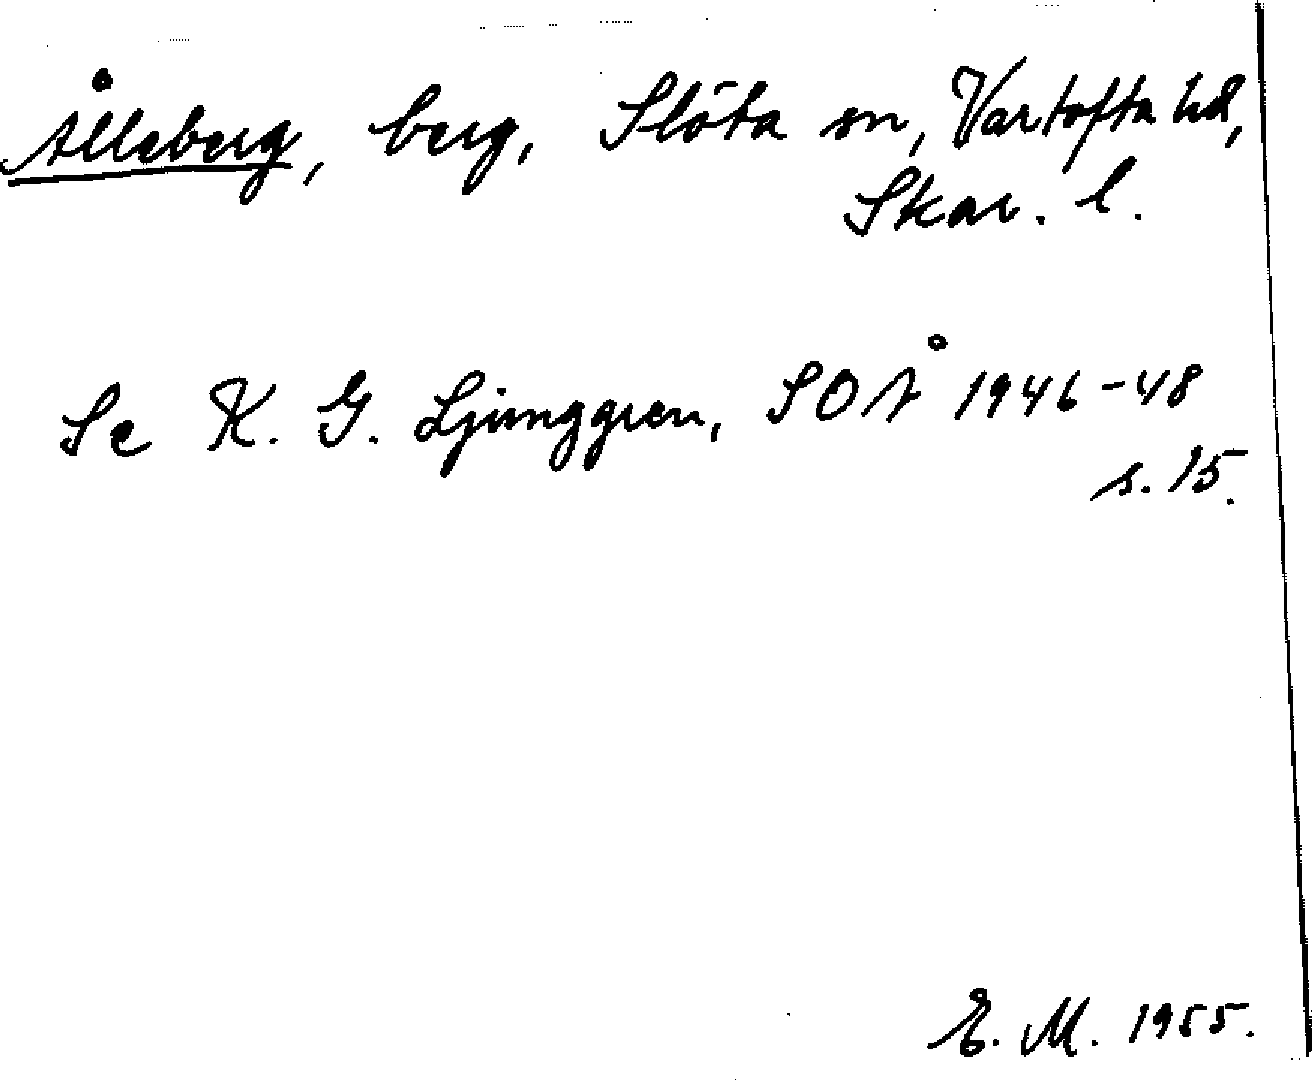 Ålleberg, berg, Slöta sn, Vartofta hd,
Skar. l.
Se K. G. Ljunggren, SOÅ 1946-48
s. 15.
E. M. 1955.